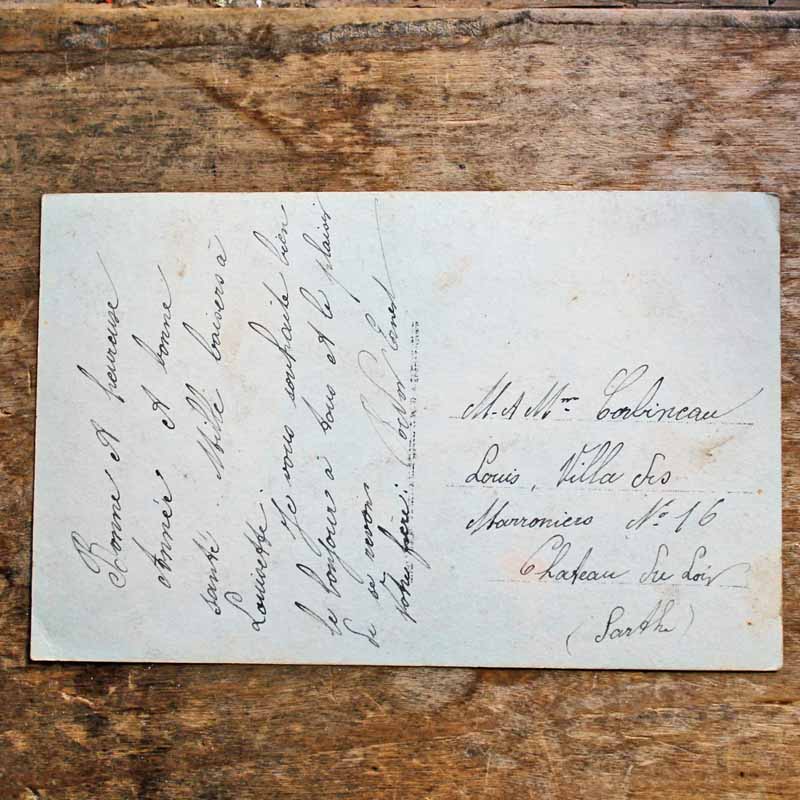 Bonne et heureuse
Année et bonne
santé. Mille baisers à
Louisette.
Je vous souhaite bien
le bonjour à tous et le plaisir
de se revoir
votre frère.
M. et Mme Corbineau
Louis, Villa des
Marroniers No 16
Chateau du Loir
(Sarthe)